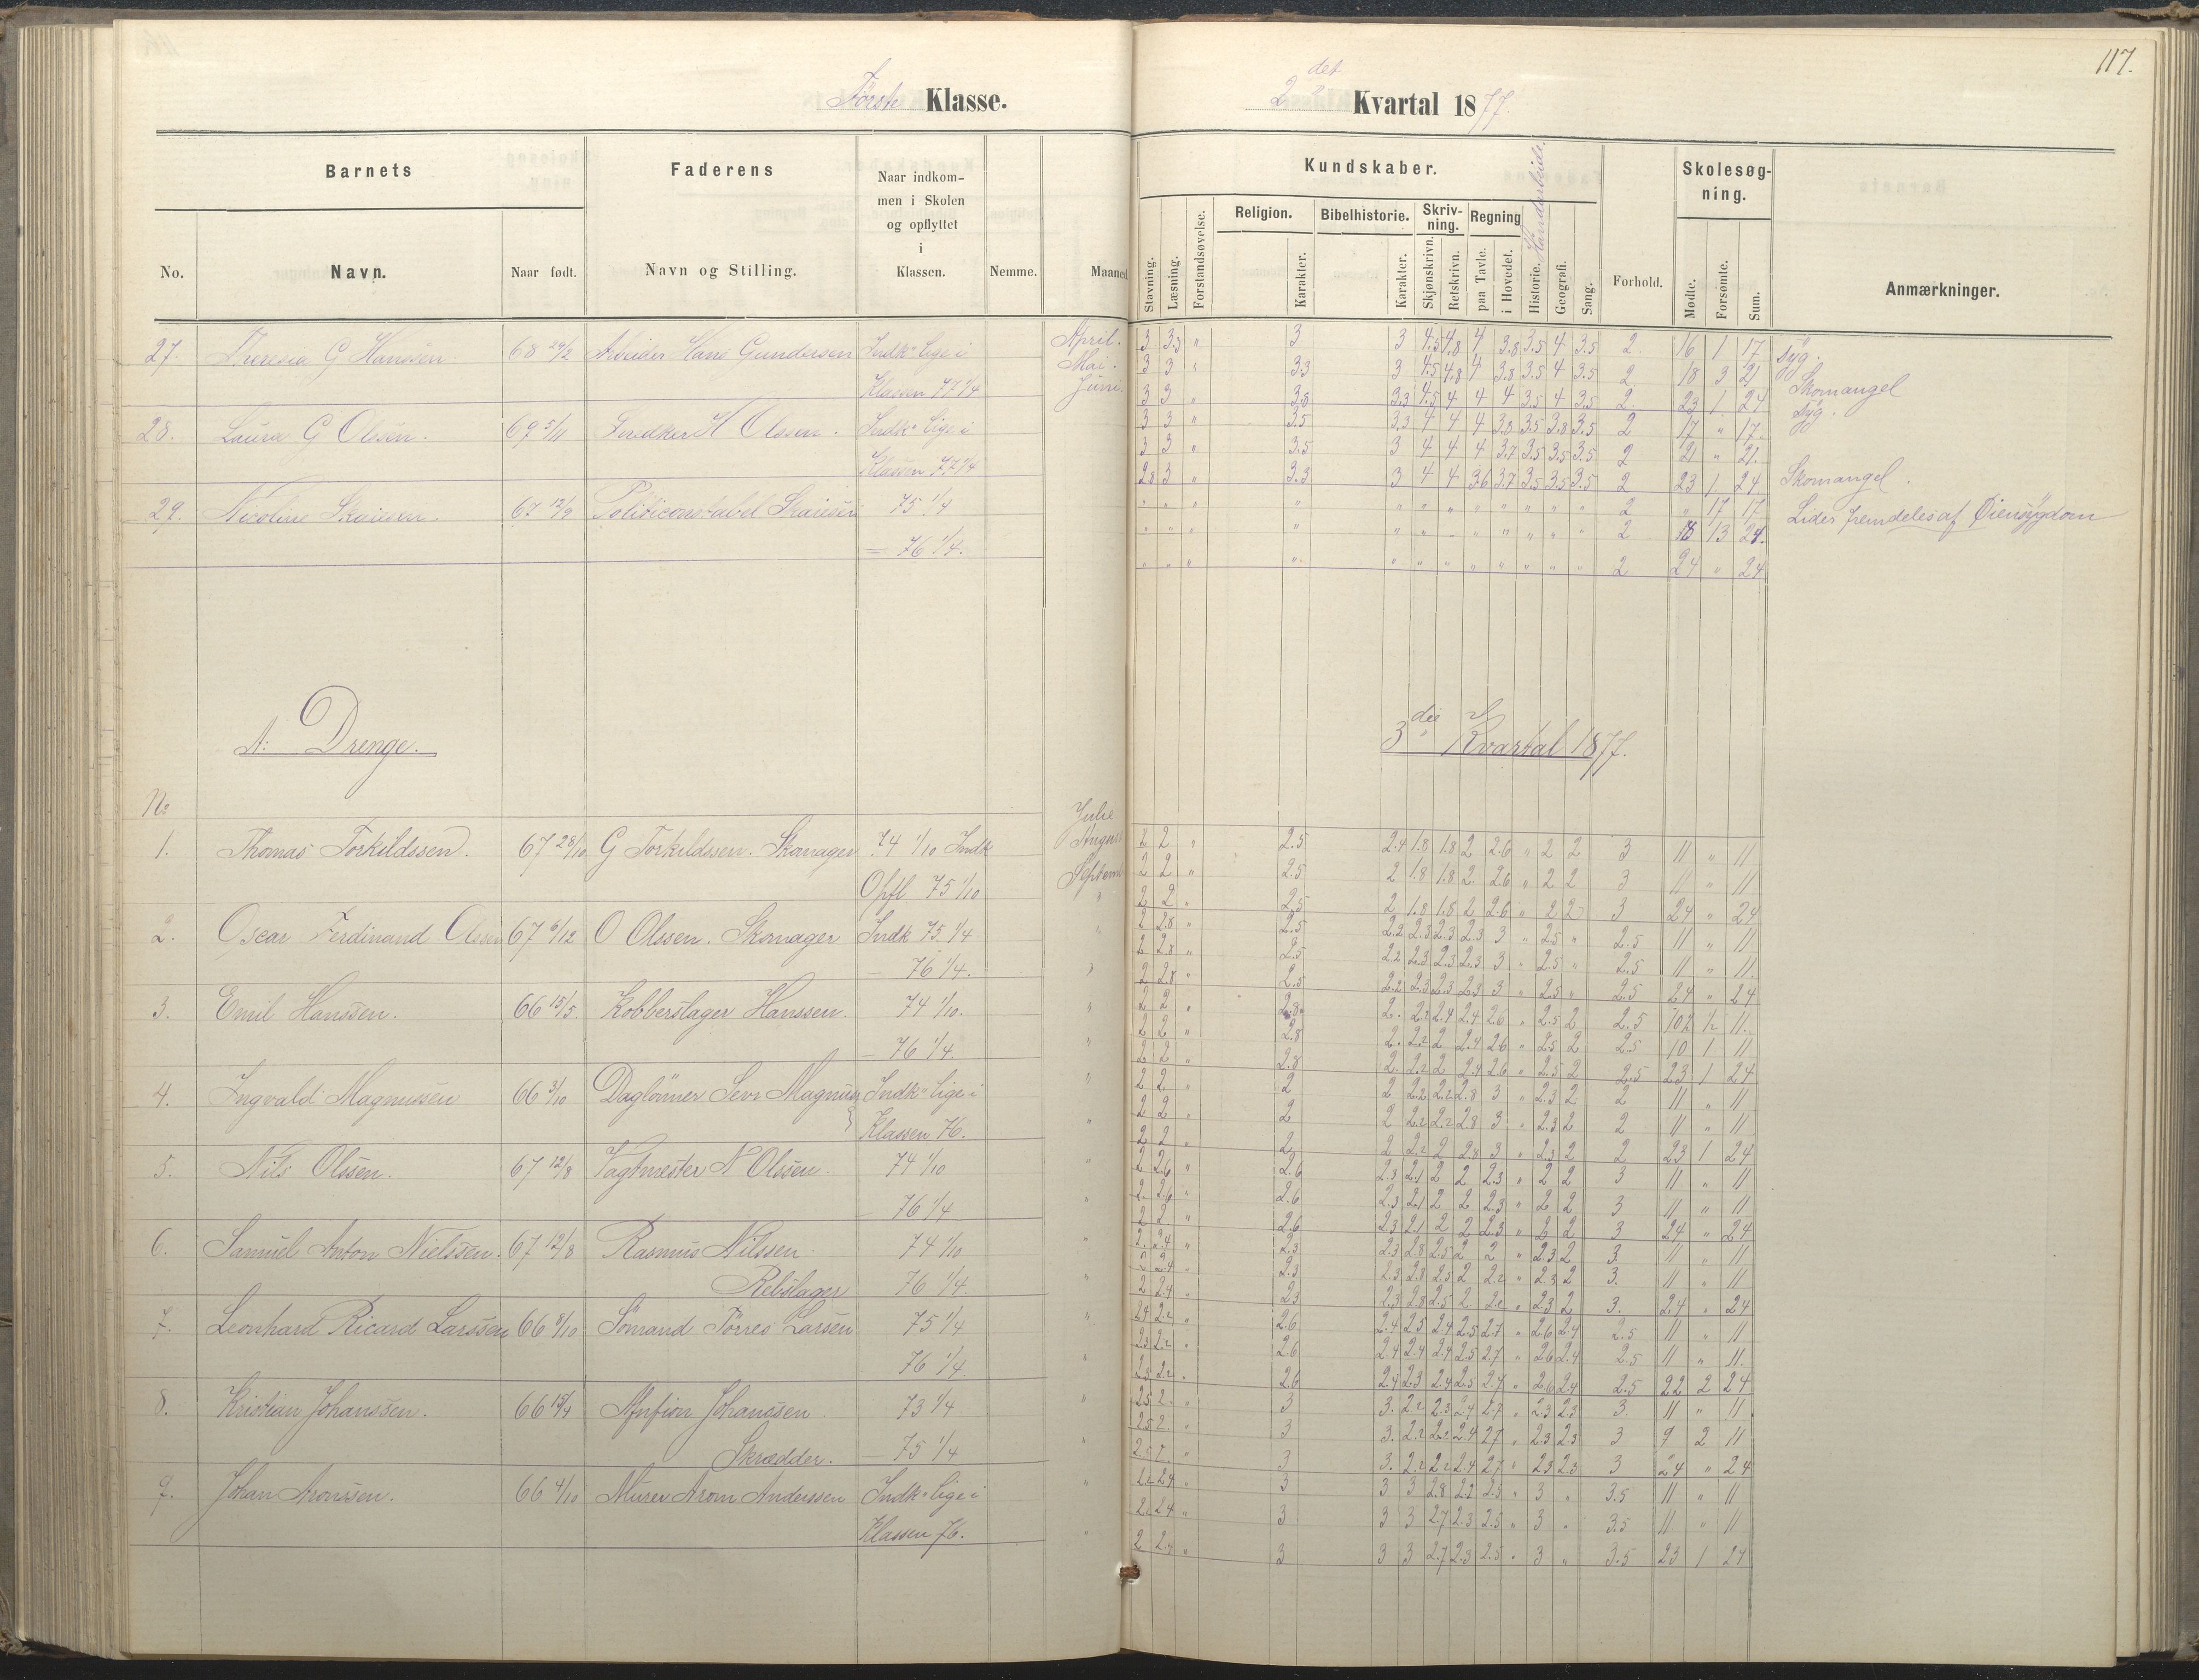 117.
Første Klasse.
2det Kvartal 1877.
Barnets
Faderens
Naar indkommen i Skolen og opflyttet i Klassen.
Kundskaber.
Haandarbeide
Skolesøgning.
No.
Navn.
Naar født.
Navn og Stilling.
Nemme.
Maaned
Stavning.
Læsning.
Forstandsøvelse.
Religion.
Karakter.
Bibelhistorie.
Karakter.
Skrivning.
Skjønskrivn.
Retskrivn.
Regning
paa Tavle.
i Hovedet.
Historie.
Geografi.
Sang.
Forhold.
Mødte.
Forsømte.
Sum.
Anmærkninger.
27. Theresia G Hanssen 68 24/2 Arbeider Hans Gundersen Indk. lige i April. 3 3.3 " 3 3 4.5 4.8 4 3.8 3.5 4 3.5 2. 16 1 17 syg.
Mai. 3 3 " 3.3 3 4.5 4.8 4 3.8 3.5 4 3.5 2 18 3 21 Skomangel
Klassen 77 1/4 Juni. 3 3 " 3.8 3.3 4.5 4 4 4 3.5 4 3.5 2 23 1 24 syg.
28. Laura G Olsen. 69 5/11 H Olssen. Indk. lige i 3 3 " 3.5 3.3 4 4 4 3.8 3.5 3.8 3.5 2 17 " 17.
3 3 " 3.5 3 4 4 4 3.7 3.5 3.5 3.5 2 21 " 21.
Klassen 77 1/4 2.8 3 " 3.3 3 4 4 3.6 3.7 3.5 3.5 3.5 2 23 1 24 Skomangel.
29. Nicoline 67 12/9 Politiconstabel 75 1/4 " " " " " " " " " " " " 2 " 17 17 Lider fremdeles af Øiensygdom
" " " " " " " " " " " " 2 13
= 76 1/4. " " " " " " " " " " " " 2 24 " 24
A: Drenge.
3die Kvartal 1877.
No
Julie
1. Thomas Torkildssen. 67 28/10 G Torkildssen. Skomager 74 1/10 Indk August 2 2 " 2.5 2.4 1.8 1.8 2 2.6 " 2 2 3 11 " 11
Septemb 2 2 " 2.5 2 1.8 1.8 2 2.6 " 2 2 3 11 " 11
Opfl 75 1/10 " 2 2 " 2.5 2 1.8 1.8 2 2.6 " 2 2 3 24 " 24
2. Oscar Ferdinand Olssen 67 6/12 O Olssen. Skomager Indk 75 1/4 " 2 2.8 " 2.5 2.2 2.3 2.3 2.3 3 " 2.5 " 2.5 11 " 11
2 2.8 " 2.5 2.2 2.3 2.3 2.3 3 " 2.5 " 2.5 11 " 11.
— 76 1/4. 2 2.8 " 2.5 2.2 2.3 2.3 2.3 3 " 2.5 " 2.5 24 " 24
3. Emil Hanssen. 66 15/5. Kobberslager Hanssen. 74 1/10. " 2 2 " 2.8 2. 2.2 2.4 2.4 2.6 " 2.5 2 2.5 10½ ½ 11.
2 2 " 2.8 2. 2.2 2 2.4 2.6 " 2.5 2 2.5 10 1 11
— 76 1/4. 2 2 " 2.8 2. 2.2 2 2.4 2.6 " 2.5 2 2.5 23 1 24
4. Ingvald Magnussen 66 3/10 Daglönner Sevr Magnus Indk. lige i 2 2 " 2 2 2.2 2.2 2.8 3 " 2.3 2 2 11 " 11
2 2 " 2 2 2.2 2.2 2.8 3 " 2.3 2 2 11 " 11
Klassen 76. 2 2 " 2 2 2.2 2 2.8 3 " 2.3 2 2 23 1 24
5. Nils Olssen. 67 12/8 Vagtmester N Olssen. 74 1/10 " 2 2.6 " 2.6 2.3 2.1 2 2 2.3 " 2 2 3 11 " 11
2. 2.6 " 2.6 2.3 2.1 2 2 2.3 " 2 2 3 11 " 11
— 76 1/4 2 2. " 2.6 2.3 2.1 2 2 2.3 " 2 2 3 24 " 24
6. Samuel Anton Nielssen. 67 12/8 Rasmus Nilssen 74 1/10 " 2. 2.4 " 2.3 2.3 2.8 2.5 2 2 " 2.3 2 3. 11 " 11
2 2.4 " 2.3 2.3 2.8 2.5 2 2.2 " 2.3 2 3. 11 " 11
Rebslager 76 1/4. 2 2.4 " 2.3 2.3 2.8 2.5 2 2.2 " 2.3 2 3. 24 " 24
7. Leonhard Ricard Larssen 66 8/10 Sömand Törres Larsen 75 1/4 " 2.4 2.2 " 2.6 2.4 2.5 2.4 2.5 2.7 " 2.6 2.4 2.5 11 " 11
2.3 2.2 " 2.6 2.4 2.4 2.4 2.5 2.7 " 2.6 2.4 2.5 11 " 11.
76 1/4. 2.3 2.2 " 2.6 2.4 2.3 2.4 2.5 2.7 " 2.6 2.4 2.5 22 2 24
8. Kristian Johanssen. 66 15/4 Johanssen 73 1/4 " 2.5 2. " 3 3. 2.2 2.3 2.4 2.7 " 2.3 2.3 3. 11 " 11
2.5 2. " 3 3. 2.2 2.2 2.4 2.7 " 2.3 2.3 3 9 2 11
Skrædder. — 75 1/4 2.5 2. " 3 3. 2.2 2.2 2.4 2.7 " 2.3 2.3 3 24 " 24
9. Johan Aronssen. 66 4/10 Murer Arom Anderssen Indk. lige i " 2.2 2.4 " 3 3 3 2.8 2.2 2.5 " 3 " 3.5 11 " 11
2.2 2.4 " 3 3 3 2.7 2.3 2.5 " 3 " 3.5 11 " 11
Klassen 76. " 2 2.4 " 3 3 3 2.7 2.3 2.5 " 3 " 3.5 23 1 24